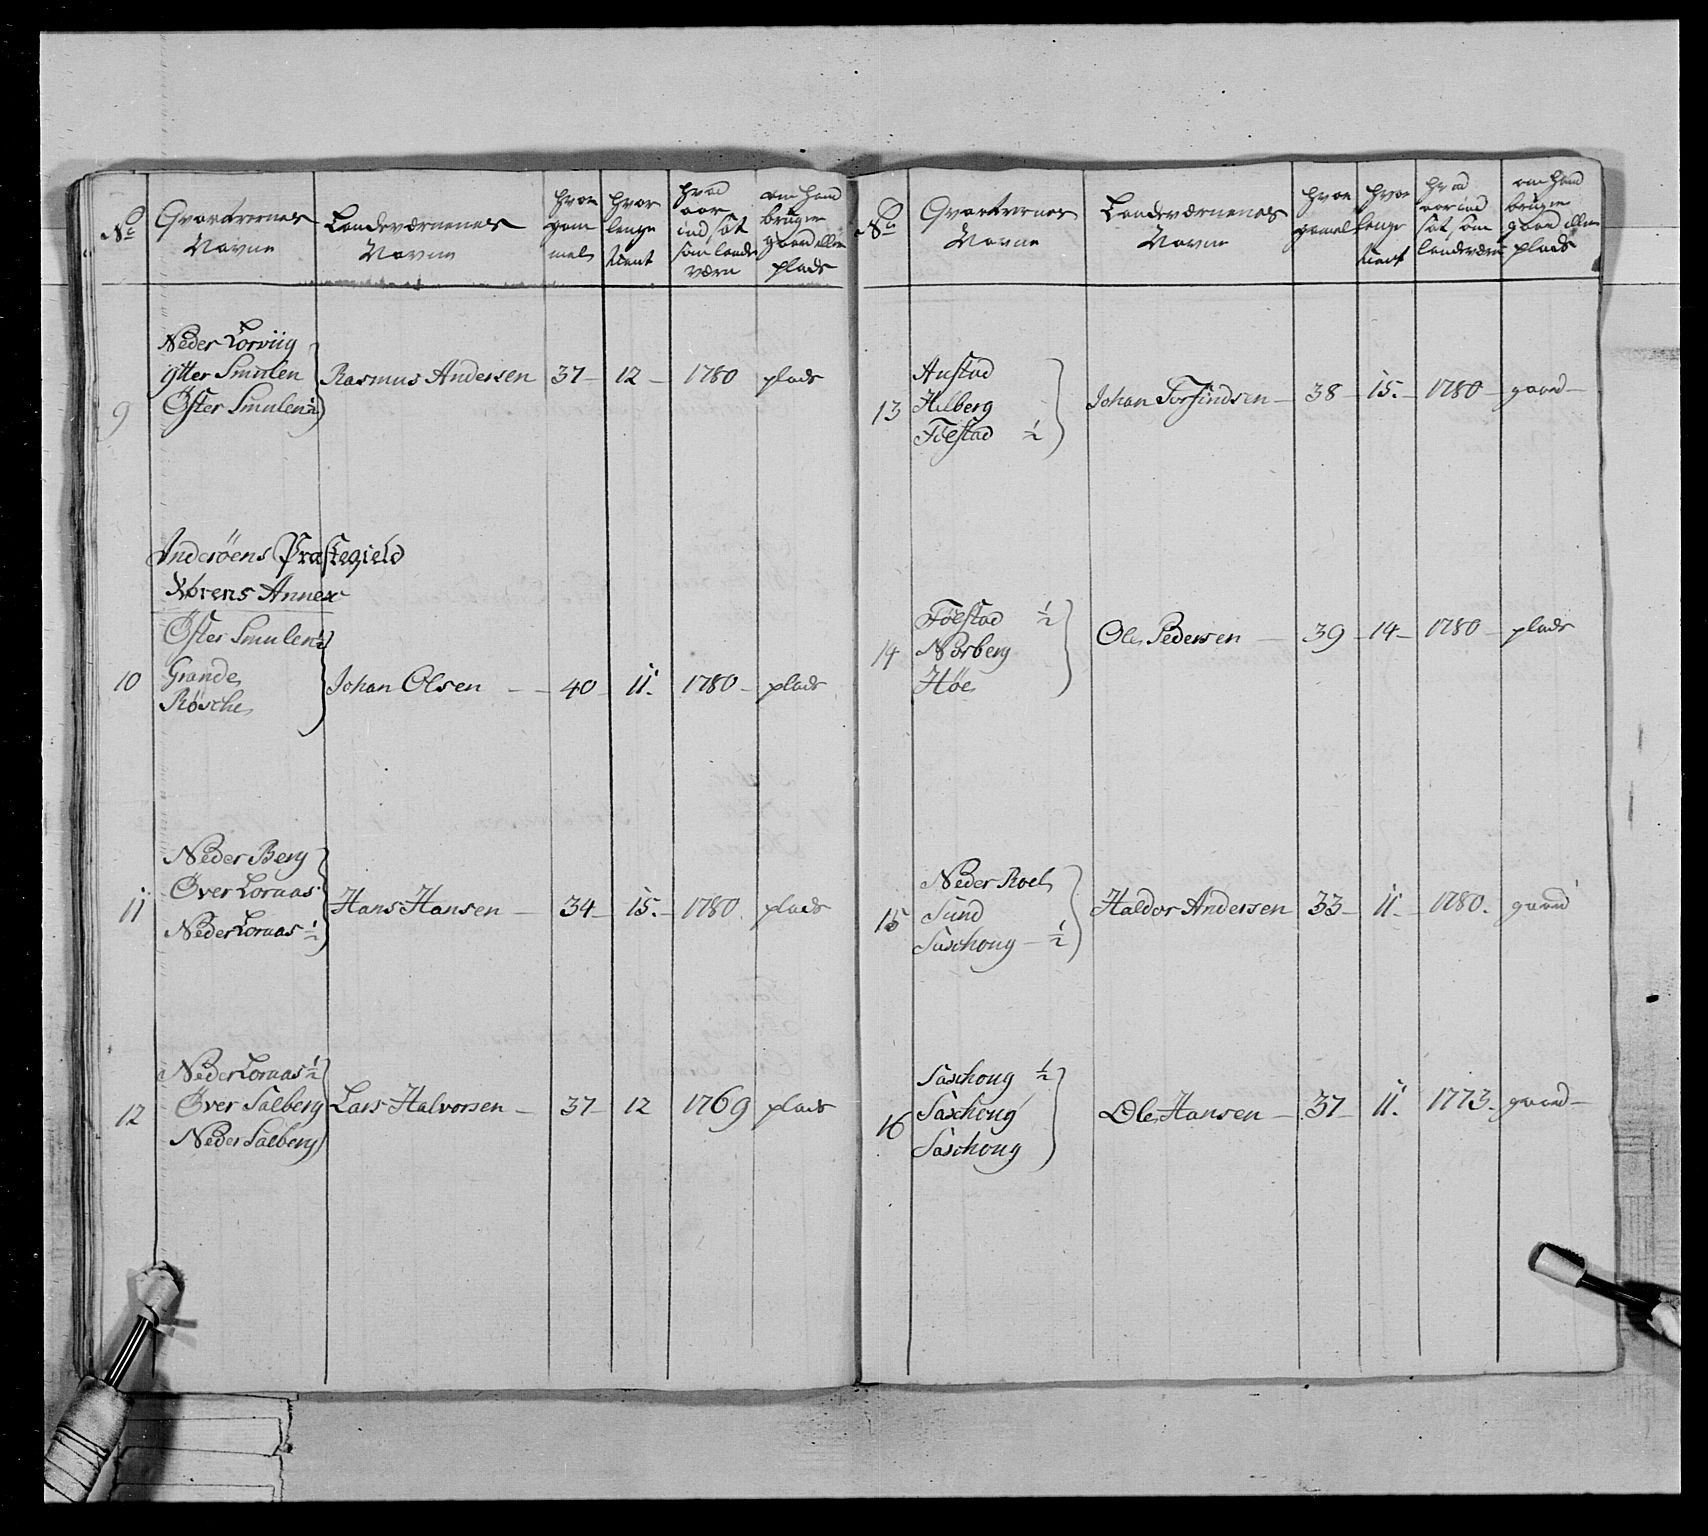 No
Qvarterernes Navne
Landeværnenes Navne
hvor gammel
hvor lenge tient
hvad aar ind sat som landeværn
om hand bruger gaard eller plads
Neder Lorviig
ytter Smulen
Øster Smulen ½
9 Rasmus Andersen 37 – 12 – 1780 plads
Inderöens Præstegield
Rørens Annex
Øster Smulen ½
Grande
Røsche
10 Johan Olsen – 40 – 11. 1780 – plads
Neder Berg
Øver Loraas
Neder Loraas ½
11 Hans Hansen – 34 – 15. – 1780 plads
Neder Loraas ½
Øver Salberg
Neder Salberg
12 Lars Halvorsen – 37 – 12 1769 plads
No
Qvarterernes Navne
Landeværnenes Navne
hvor gamel
hvor lenge tient
hvad aar ind sat som landeværn
om hand bruger gaard eller plads
Austad
Hilberg
Föestad ½
13 Johan Torfindsen – 38 – 15. – 1780 – gaard –
Föestad ½
Norberg
Höe
14 Ole Pedersen – 39 – 14 – 1780 – plads
Neder Roel
Sund
Saxhoug – ½
15 Haldor Andersen 33 – 11 – 1780. gaard
Saxhoug ½
Saxhoug
Saxhoug
16 Ole Hansen – 37 – 11. 1773. gaard –